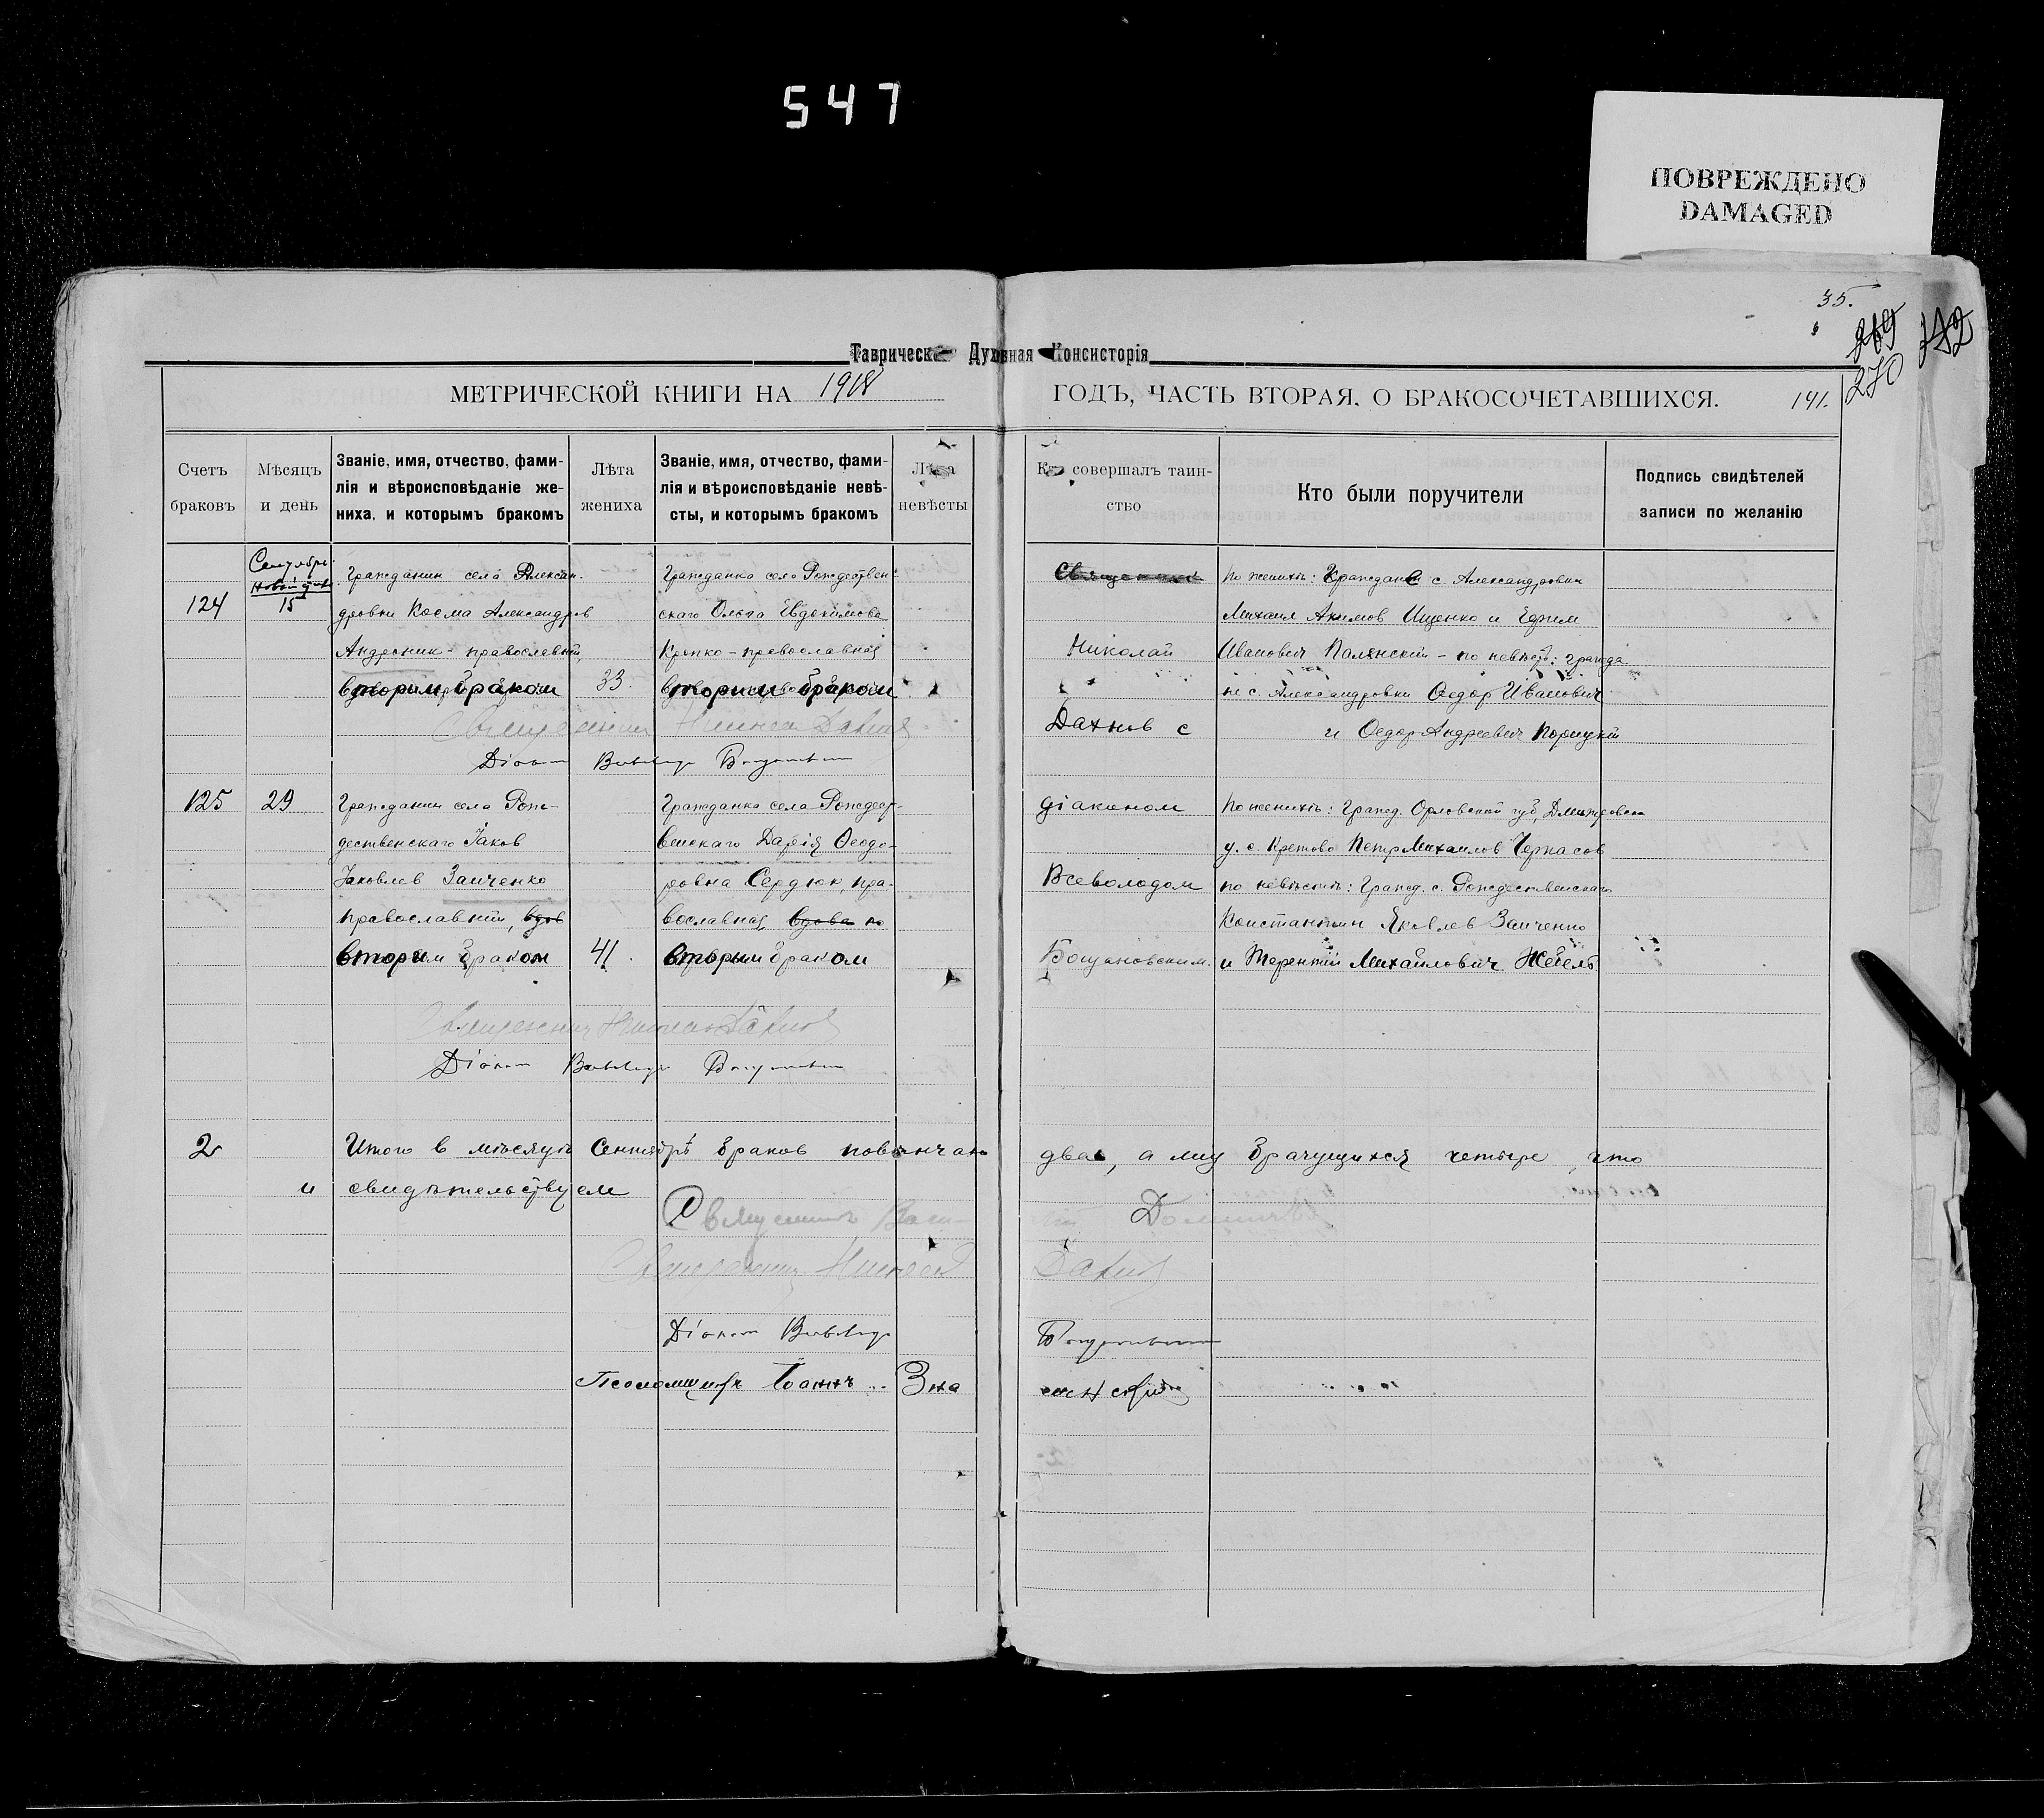 547
ПОВРЕЖДЕНО
DAMAGED
35.
269 272
270
Таврическ Духовная Консисторія
МЕТРИЧЕСКОЙ КНИГИ НА 1918 ГОДЪ, ЧАСТЬ ВТОРАЯ, О БРАКОСОЧЕТАВШИХСЯ. 141.
Счетъ браковъ
Мѣсяцъ и день
Званіе, имя, отчество, фами-
лія и вѣроисповѣданіе же-
ниха, и которымъ бракомъ
Лѣта жениха
Званіе, имя, отчество, фами-
лія и вѣроисповѣданіе невѣ-
сты, и которымъ бракомъ
Лѣта невѣсты
Кто совершалъ таин-
ство
Кто были поручители
Подпись свидѣтелей
записи по желанію
124
Сентябрь
Новый
15
Гражданин села Алексан-
дровки Косма Александров
Андроник - православный,
вторым браком
33.
Гражданка села Рождествен-
скаго Ольга Евдокимова
Крепко - православная
вторим браком
Николай
Дахнов с
По женихѣ: Граждане с. Александровки
Михаил Акимов Ищенко и Ефрем
Иванович Палянский - по невѣстѣ: гражда
не с. Александровки Федор Иванович
и Федор Андреевич Корицкий
Діакон Всеволод
125
29
Гражданин села Рож-
дественскаго Іаков
Яковлев Заиченко
православный, вдов
вторым браком
41.
Гражданка села Рождест-
венскаго Дарія Феодо-
ровна Сердюк, пра-
вославная, вдова по
вторым браком
діаконом
Всеволодом
По женихѣ: гражд. Орловской губ, Дмитровска
у. с. Кретово Петр Михаилов Черкасов
по невѣстѣ: Гражд. с. Рождественскаго
Константин Яковлев Заиченко
и Терентий Михайлович
Священник Николай Дахнов
Діакон Всеволод
2
Итого в мѣсяцѣ Сентябрѣ браков повѣнчано два, а лиц брачущихся четыре, что
и свидѣтельствуем
Священникъ
Священник Николай Дахнов
Діакон Всеволод
Псаломщикъ Іоаннъ